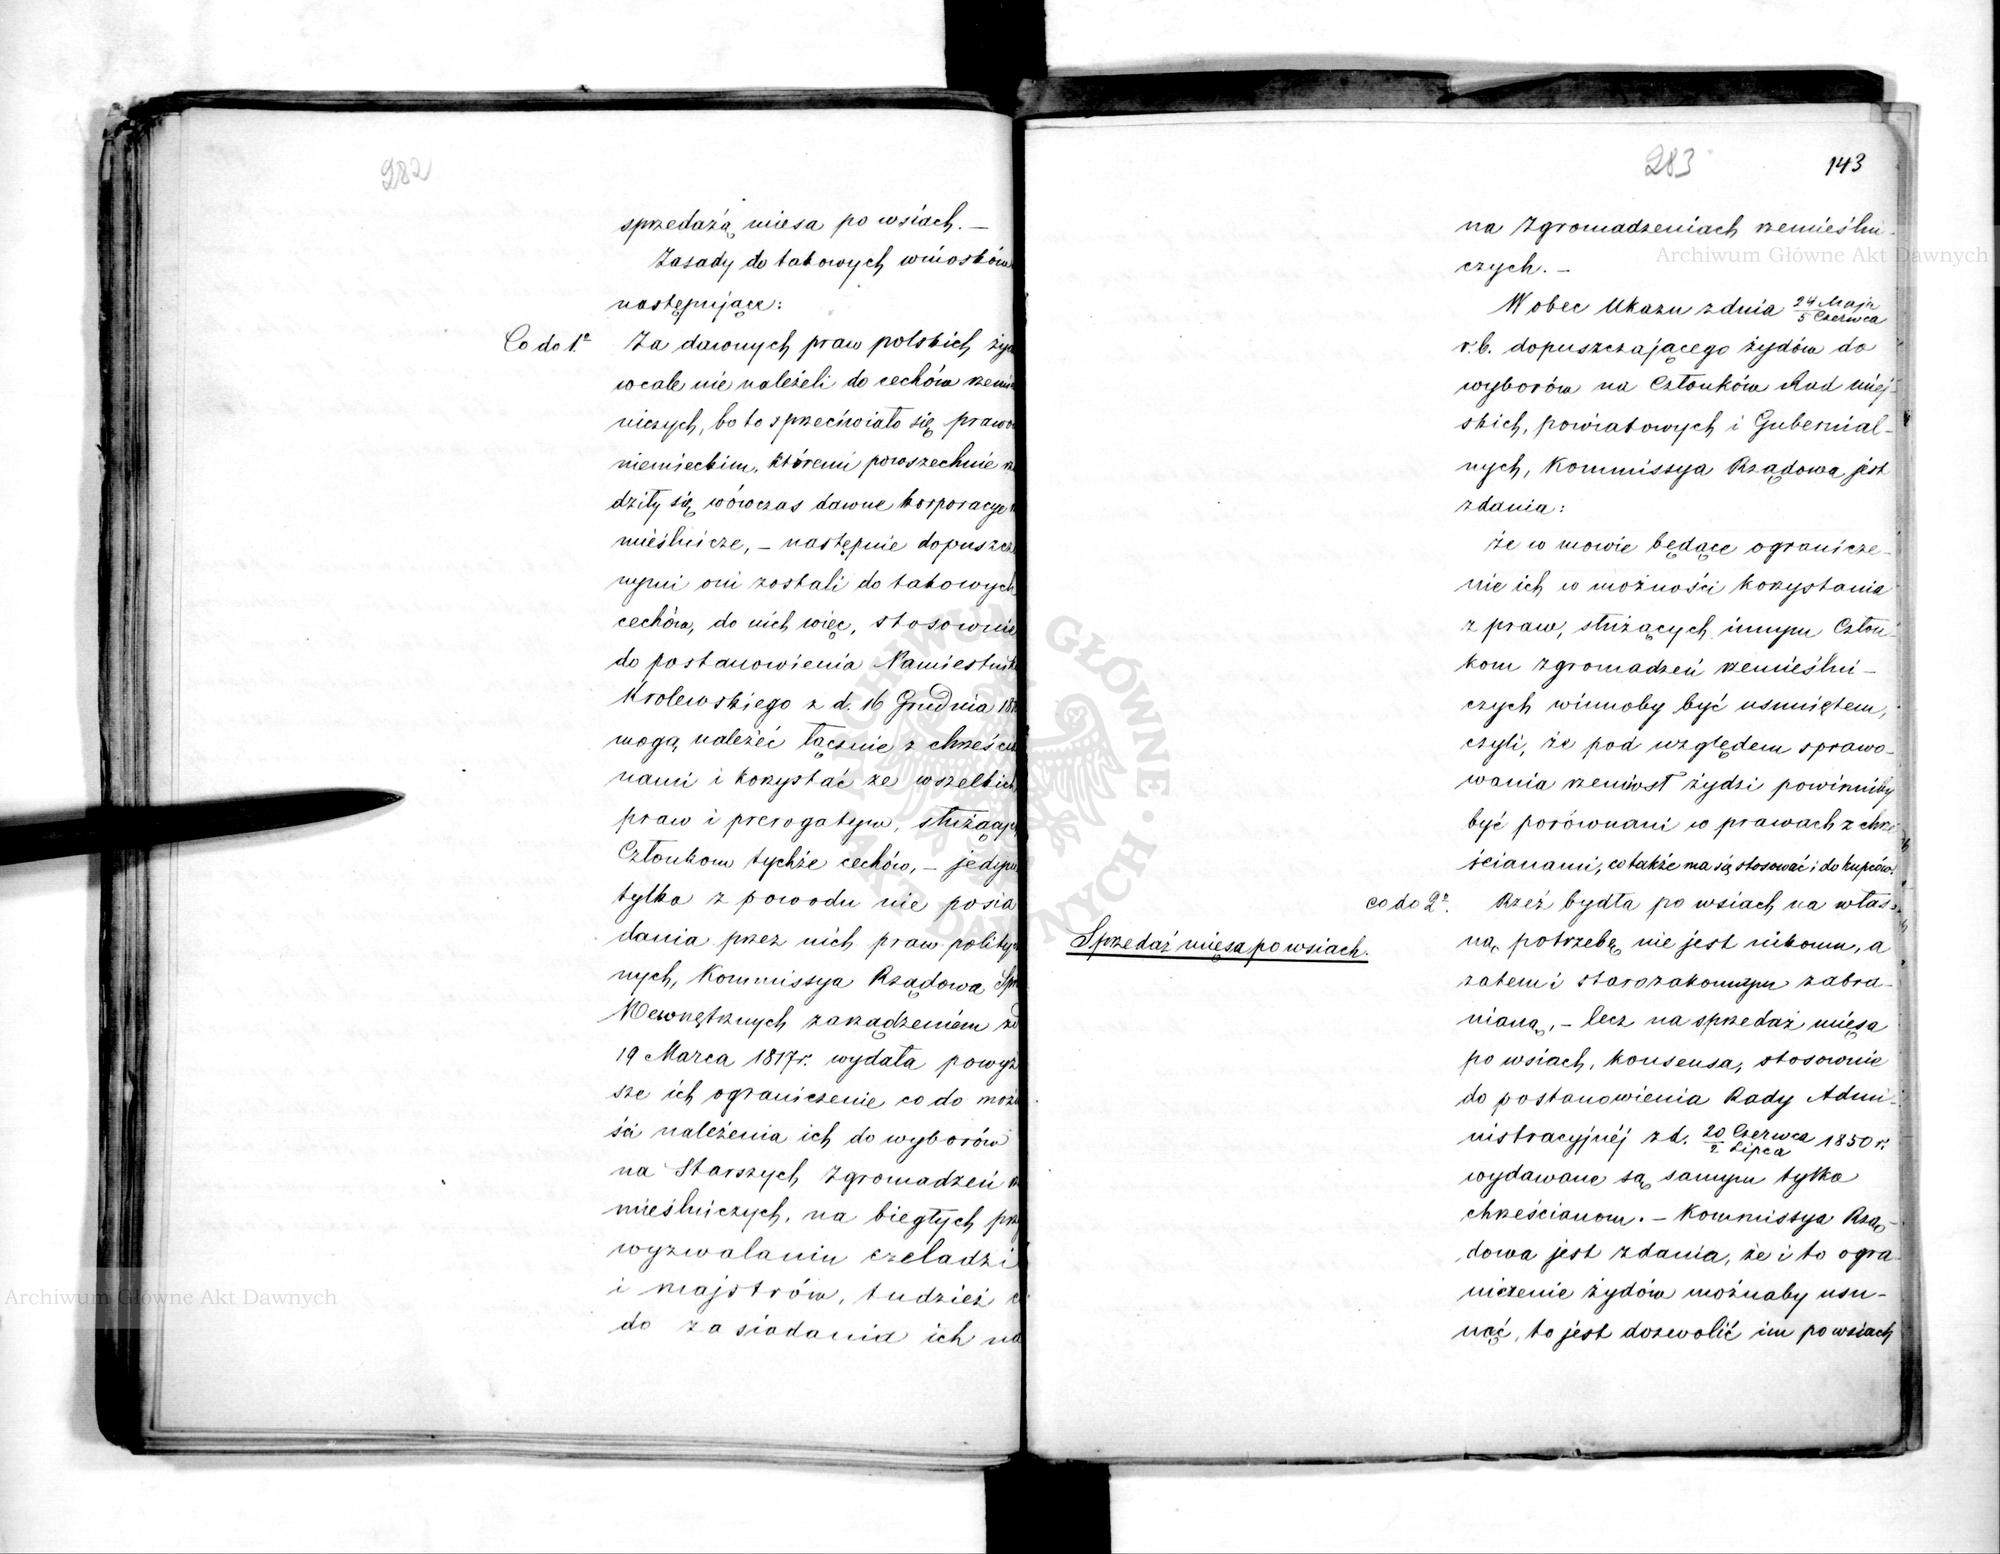 282
sprzedażą mięsa po wsiach. —
Zasady do takowych wniosków
następujące:
Co do 1º Za dawnych praw polskich ży
wcale nie należeli do cechów rzem
niczych, bo to sprzeciwiało się prawo
niemieckim, któremi powszechnie
dziły się wówczas dawne korporacye
mieślnicze, — następnie dopuszcze
nymi oni zostali do takowych
cechów, do nich więc, stosownie
do postanowienia Namiestnik
Krolewskiego z d. 16 Grudnia 181
mogą należeć łącznie z chrześcia
nami i korzystać ze wszelkich
praw i prerogatyw, służący
Członkom tychże cechów, — jedyn
tylko z powodu nie posia
dania przez nich praw polity
nych, Kommissya Rządowa Spr
Wewnętrznych zarządzeniem z d
19 Marca 1817 r. wydała powyż
sze ich ograniczenie co do możn
ści należenia ich do wyborów
na Starszych Zgromadzeń
mieślniczych, na biegłych prz
wyzwalaniu czeladzi
i majstrów, tudzież
do zasiadania ich na
283 143
na Zgromadzeniach rzemieślni-
czych. —
Wobec Ukazu z dnia 24 Maja / 5 Czerwca
r.b. dopuszczającego żydów do
wyborów na Członków Rad miej-
skich, powiatowych i Gubernial-
nych, Kommissya Rządowa jest
zdania:
że w mowie będące ogranicze-
nie ich w możności korzystania
z praw, służących innym Człon-
kom zgromadzeń rzemieślni-
czych winnoby być usuniętem,
czyli, że pod względem sprawo-
wania rzemiosł żydzi powinniby
być porównani w prawach z chrze-
ścianami, co także ma się stosować i do kupców.
co do 2º. Rzeź bydła po wsiach na włas-
Sprzedaż mięsa po wsiach.
ną potrzebę nie jest nikomu, a
zatem i starozakonnym zabra-
nianą, — lecz na sprzedaż mięsa
po wsiach, konsensa, stosownie
do postanowienia Rady Admi-
nistracyjnéj z d. 20 Czerwca / 2 Lipca 1850 r.
wydawane są samym tylko
chrześcianom. — Kommissya Rzą-
dowa jest zdania, że i to ogra
niczenie żydów możnaby usu-
nąć, to jest dozwolić im po wsiach
Archiwum Główne Akt Dawnych
Archiwum Główne Akt Dawnych
ARCHIWUM GŁÓWNE AKT DAWNYCH